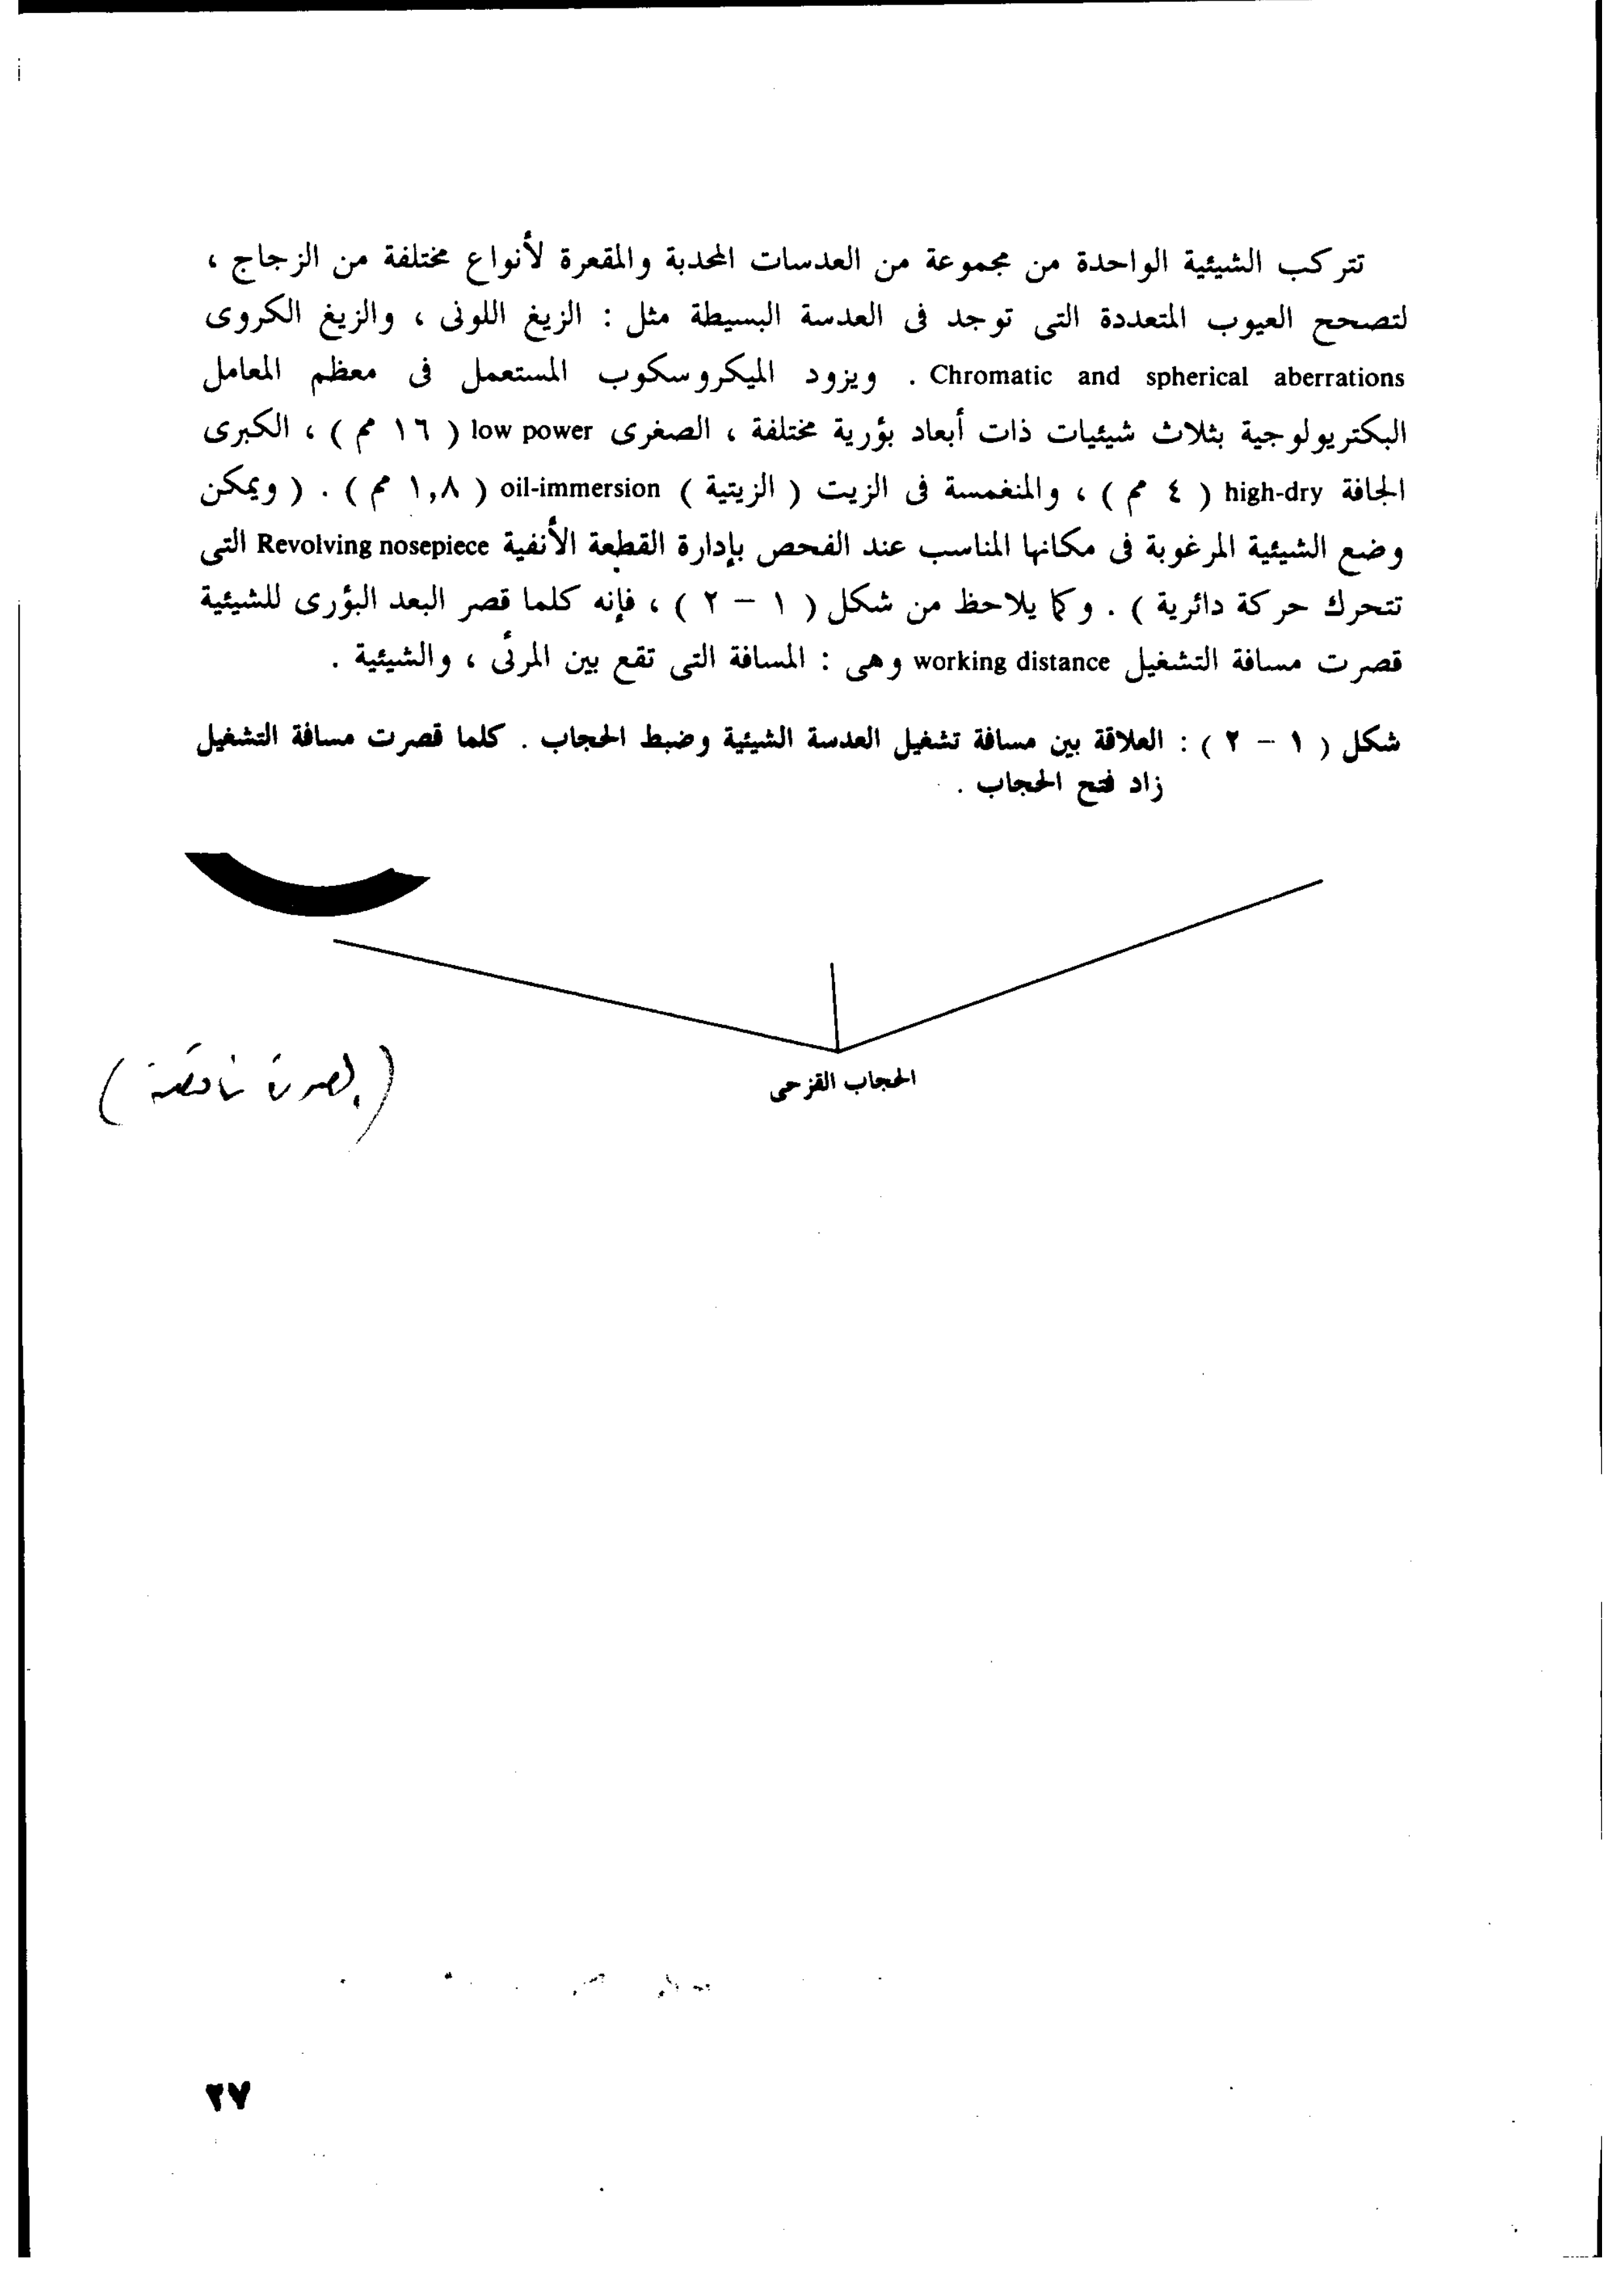 تتركب الشيئية الواحدة من مجموعة من العدسات المحدبة والمقعرة لأنواع مختلفة من الزجاج ،
لتصحح العيوب المتعددة التى توجد فى العدسة البسيطة مثل : الزيغ اللونى ، والزيغ الكروى
Chromatic and spherical aberrations . ويزود الميكروسكوب المستعمل فى معظم المعامل
البكتريولوجية بثلاث شيئيات ذات أبعاد بؤرية مختلفة ، الصغرى low power ( ١٦ مم ) ، الكبرى
الجافة high-dry ( ٤ مم ) ، والمنغمسة فى الزيت ( الزيتية ) oil-immersion ( ١,٨ مم ) . ( ويمكن
وضع الشيئية المرغوبة فى مكانها المناسب عند الفحص بإدارة القطعة الأنفية Revolving nosepiece التى
تتحرك حركة دائرية ) . وكما يلاحظ من شكل ( ١ – ٢ ) ، فإنه كلما قصر البعد البؤرى للشيئية
قصرت مسافة التشغيل working distance وهى : المسافة التى تقع بين المرئى ، والشيئية .
شكل ( ١ – ٢ ) : العلاقة بين مسافة تشغيل العدسة الشيئية وضبط الحجاب . كلما قصرت مسافة التشغيل
زاد فتح الحجاب .
الحجاب القزحى
( الصورة ناقصة )
٢٧